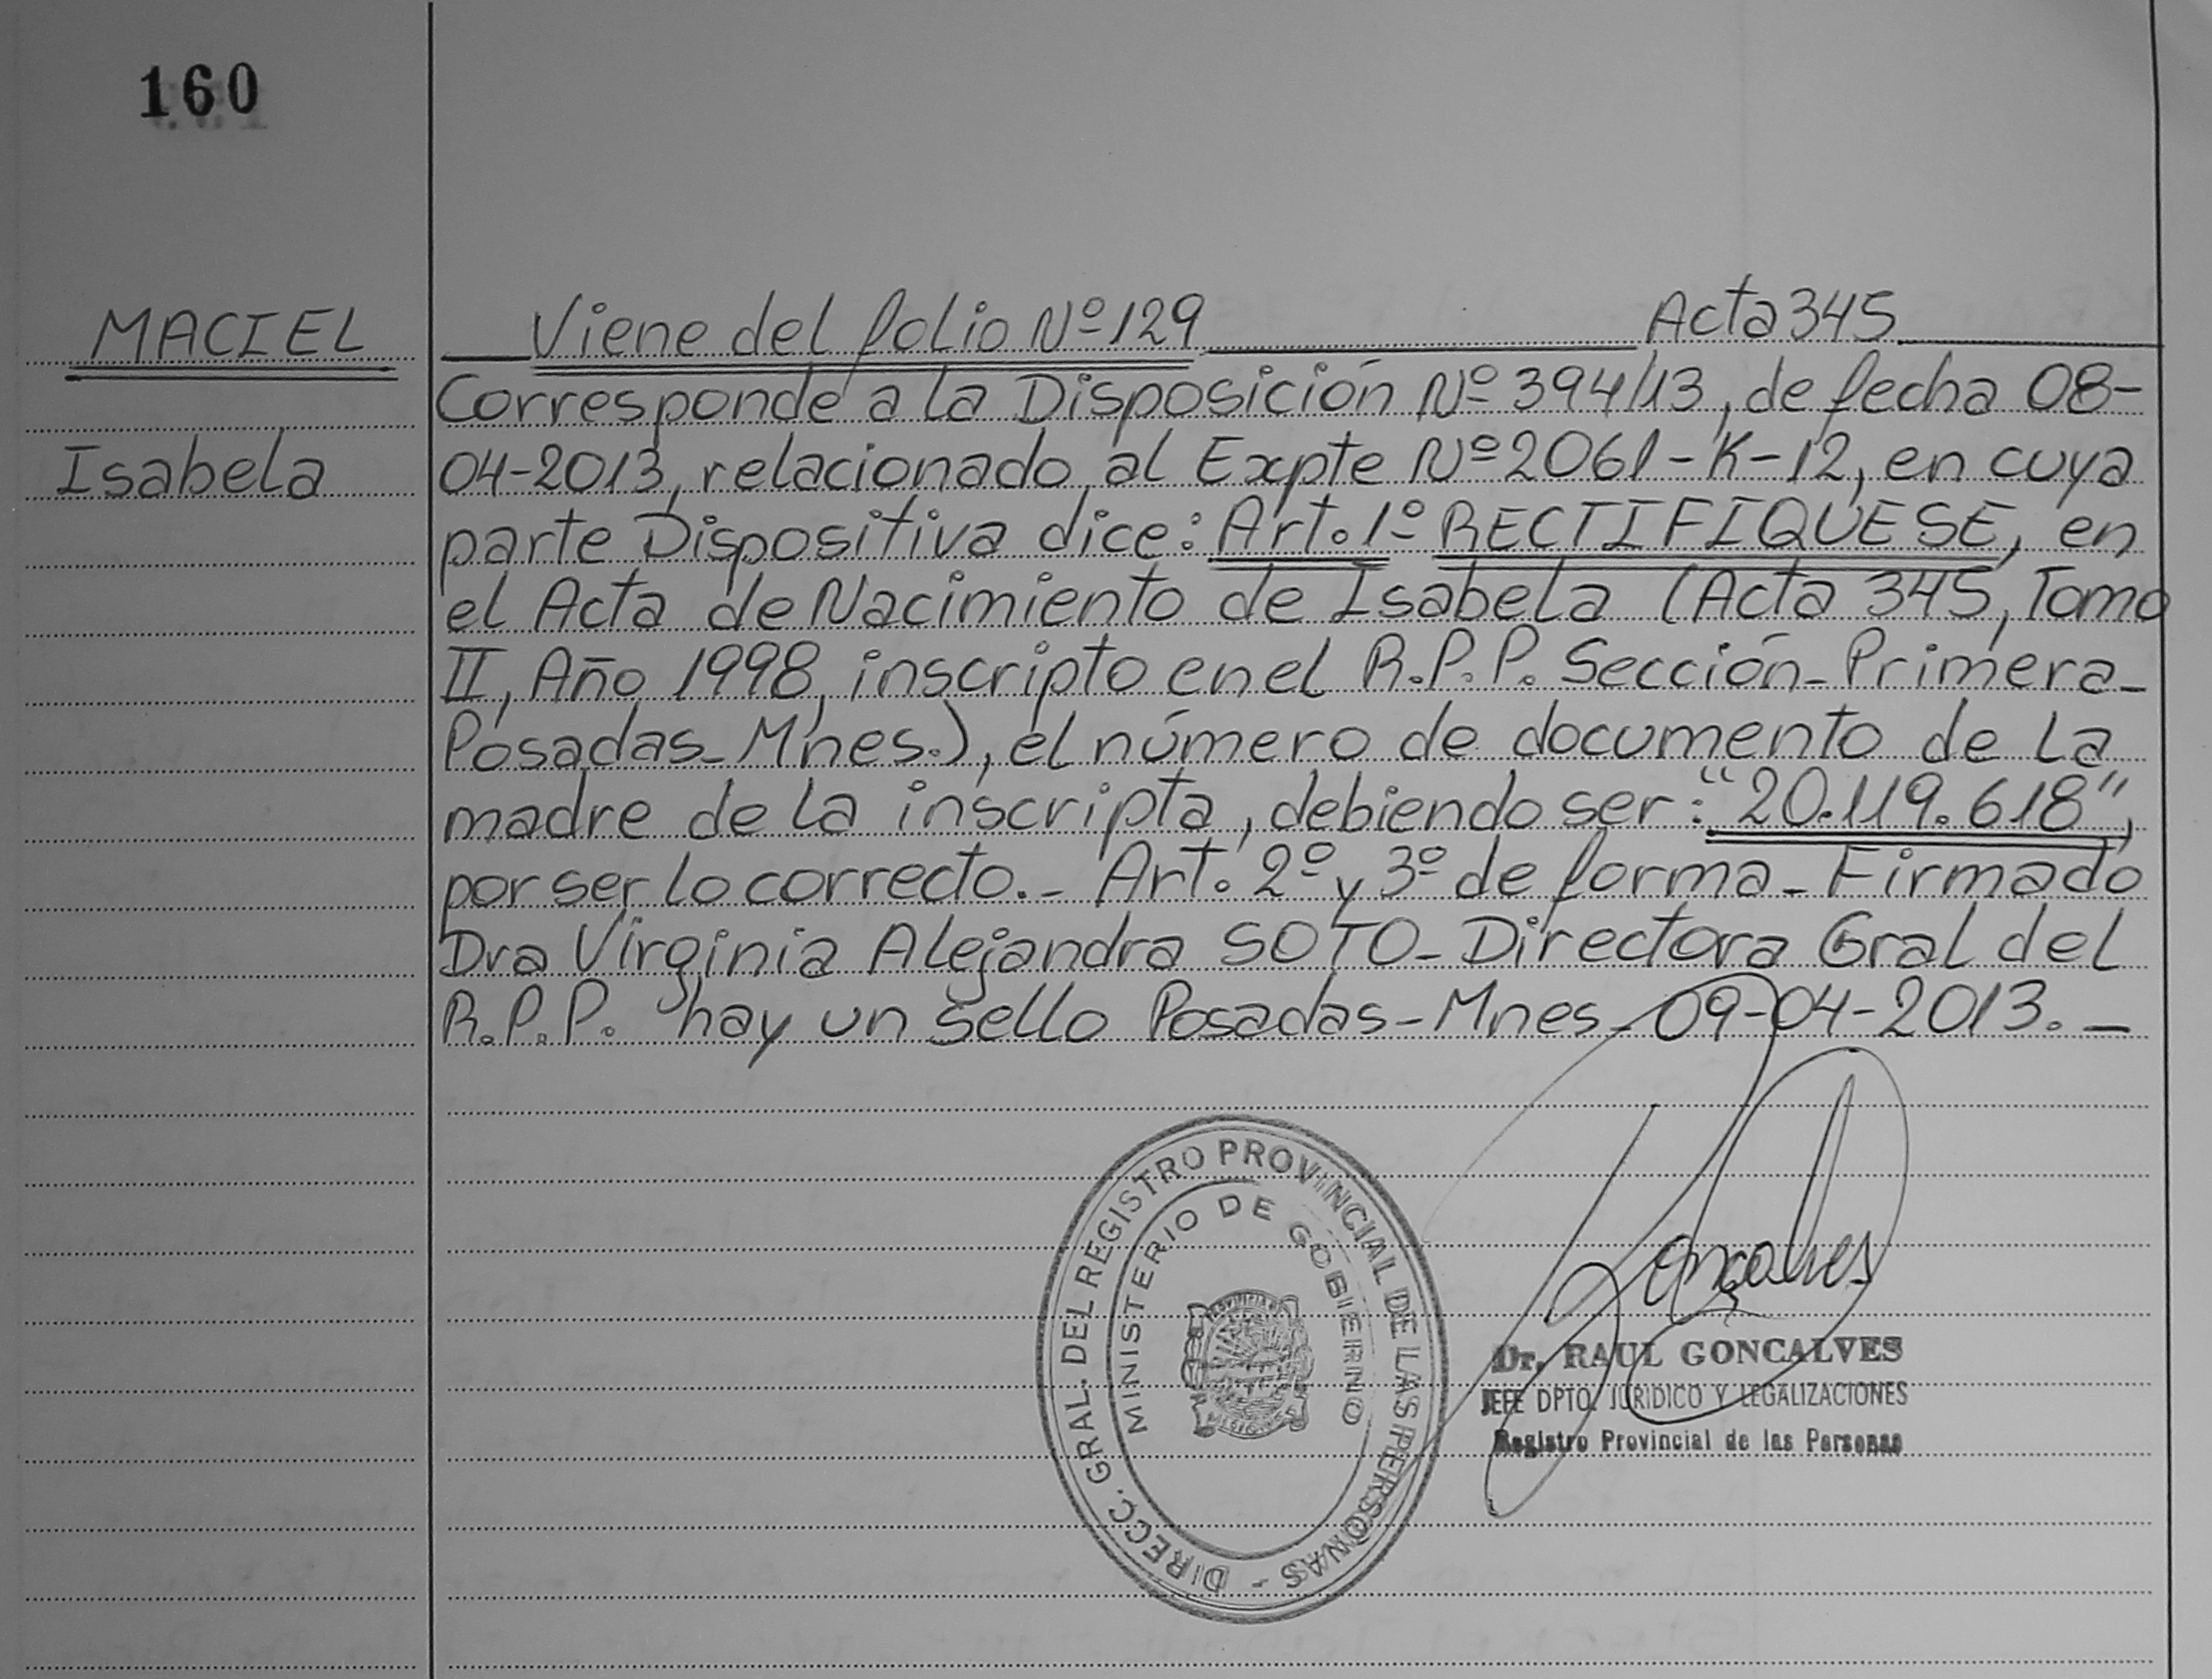 160
MACIEL
Isabela
Viene del folio Nº 129 Acta 345
Corresponde a la Disposición Nº 394/13, de fecha 08-
04-2013, relacionado al Expte Nº 2061-K-12, en cuya
parte Dispositiva dice: Art. 1º RECTIFIQUESE, en
el Acta de Nacimiento de Isabela (Acta 345, Tomo
II, Año 1998, inscripto en el R.P.P. Sección-Primera-
Posadas-Mnes.), el número de documento de la
madre de la inscripta, debiendo ser: "20.119.618",
por ser lo correcto.- Art. 2º y 3º de forma- Firmado
Dra Virginia Alejandra SOTO- Directora Gral del
R.P.P. hay un sello Posadas-Mnes-09-04-2013.-
DIRECC. GRAL. DEL REGISTRO PROVINCIAL DE LAS PERSONAS -
MINISTERIO DE GOBIERNO
Goncalves
Dr. RAUL GONCALVES
JEFE DPTO. JURIDICO Y LEGALIZACIONES
Registro Provincial de las Personas